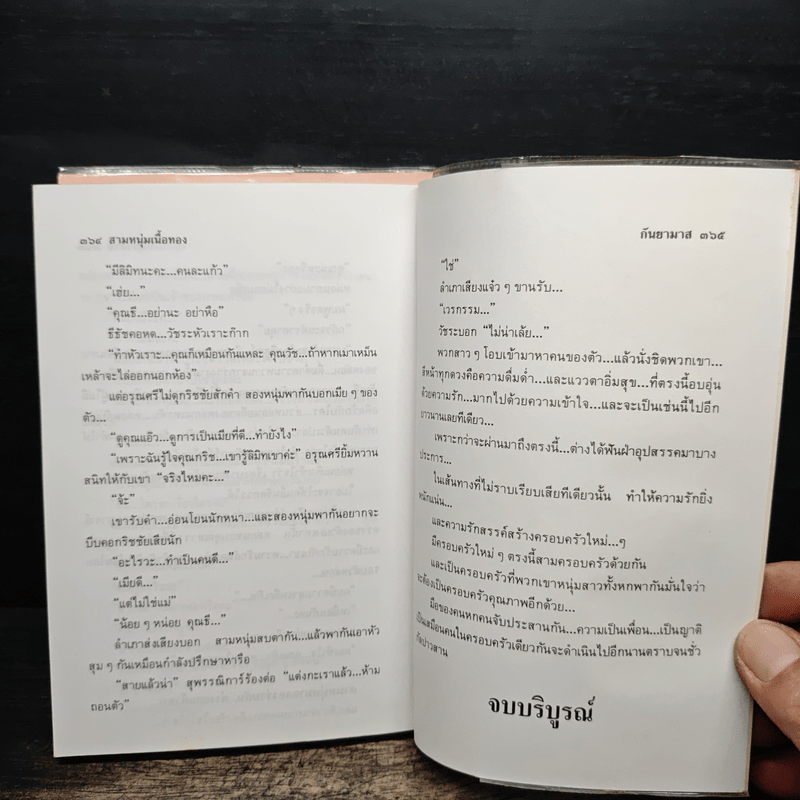 ๓๖๔ สามหนุ่มเนื้อทอง
"มีลิมิทนะคะ...คนละแก้ว"
"เฮ่ย..."
"คุณธี...อย่านะ อย่าหือ"
ธีธัชคอหด...วัชระหัวเราะก๊าก
"ทำหัวเราะ...คุณก็เหมือนกันแหละ คุณวัช...ถ้าหากเมาเหม็น
เหล้าจะไล่ออกนอกห้อง"
แต่อรุณศรีไม่ดุกริชชัยสักคำ สองหนุ่มพากันบอกเมีย ๆ ของ
ตัว...
"ดูคุณแอ๊ว...ดูการเป็นเมียที่ดี...ทำยังไง"
"เพราะฉันรู้ใจคุณกริช...เขารู้ลิมิทเขาค่ะ" อรุณศรียิ้มหวาน
สนิทให้กับเขา "จริงไหมคะ..."
"จ้ะ"
เขารับคำ...อ่อนโยนนักหนา...และสองหนุ่มพากันอยากจะ
บีบคอกริชชัยเสียนัก
"อะไรวะ...ทำเป็นคนดี..."
"เมียดี..."
"แต่ไม่ใช่แม่"
"น้อย ๆ หน่อย คุณธี..."
ลำเภาส่งเสียงบอก สามหนุ่มสบตากัน...แล้วพากันเอาหัว
สุม ๆ กันเหมือนกำลังปรึกษาหารือ
"สายแล้วน่า" สุพรรณิการ์ร้องต่อ "แต่งกะเราแล้ว...ห้าม
ถอนตัว"
กันยามาส ๓๖๕
"ใช่"
ลำเภาเสียงแจ๋ว ๆ ขานรับ...
"เวรกรรม..."
วัชระบอก "ไม่น่าเล้ย..."
พวกสาว ๆ โอบเข้ามาหาคนของตัว...แล้วนั่งชิดพวกเขา...
สีหน้าทุกดวงคือความดื่มด่ำ...และแววตาอิ่มสุข...ที่ตรงนี้อบอุ่น
ด้วยความรัก...มากไปด้วยความเข้าใจ...และจะเป็นเช่นนี้ไปอีก
ยาวนานเลยทีเดียว...
เพราะกว่าจะผ่านมาถึงตรงนี้...ต่างได้ฟันฝ่าอุปสรรคมาบาง
ประการ...
ในเส้นทางที่ไม่ราบเรียบเสียทีเดียวนั้น ทำให้ความรักยิ่ง
หนักแน่น...
และความรักสรรค์สร้างครอบครัวใหม่...ๆ
มีครอบครัวใหม่ ๆ ตรงนี้สามครอบครัวด้วยกัน
และเป็นครอบครัวที่พวกเขาหนุ่มสาวทั้งหกพากันมั่นใจว่า
จะต้องเป็นครอบครัวคุณภาพอีกด้วย...
มือของคนหกคนจับประสานกัน...ความเป็นเพื่อน...เป็นญาติ
เป็นเสมือนคนในครอบครัวเดียวกันจะดำเนินไปอีกนานตราบจนชั่ว
กัลปาวสาน
จบบริบูรณ์